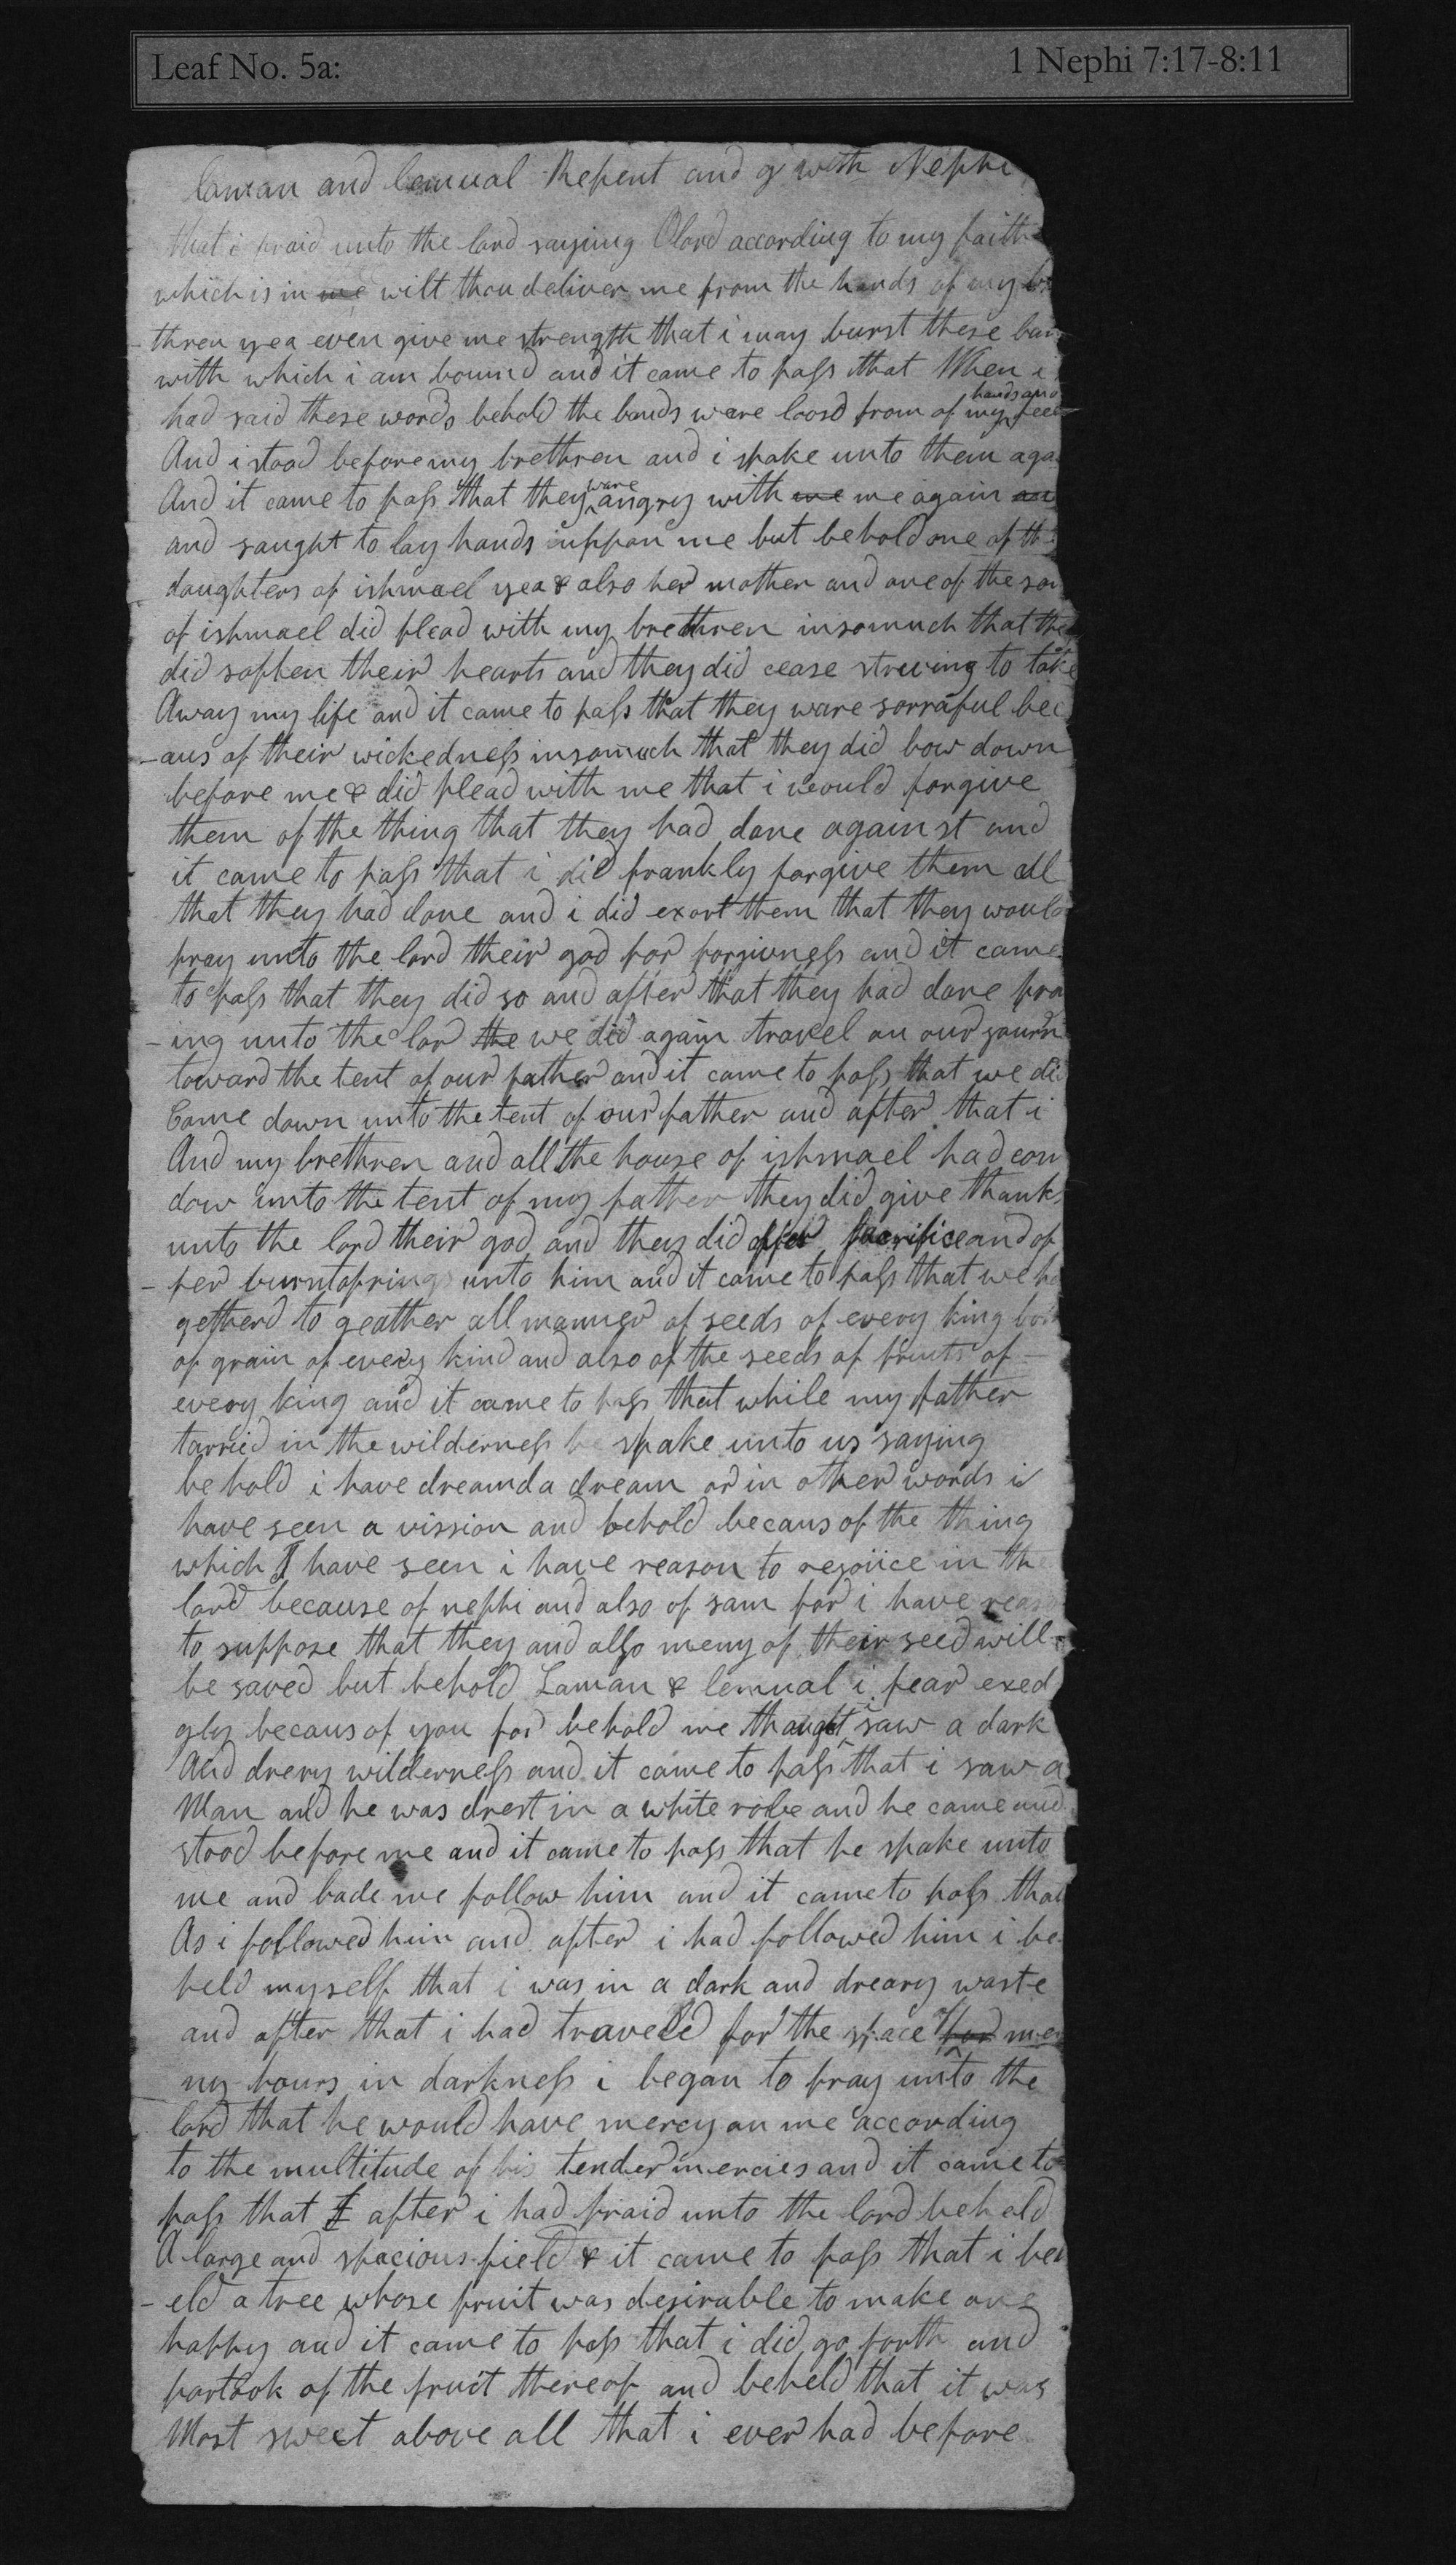 Leaf No. 5a: 1 Nephi 7:17-8:11
laman and lemual Repent and g with Nephi
that i praid unto the lord saying O lord according to my faith
which is in me wilt thou deliver me from the hands of my br
thren yea even give me strength that i may burst these ban
with which i am bound and it came to pass that When i
hands and
had said these words behold the bands ware loosd from of my feet
And i stood before my brethren and i spake unto them aga
ware
And it came to pass that they angry with me me again an
and saught to lay hands uppon me but behold one of th
daughters of ishmael yea & also her mother and one of the son
of ishmael did plead with my brethren insomuch that the
did soften their hearts and they did cease striving to take
Away my life and it came to pass that they ware sorraful bec
-aus of their wickedness insomuch that they did bow down
before me & did plead with me that i would forgive
them of the thing that they had done against and
it came to pass that i did frankly forgive them all
that they had done and i did exort them that they would
pray unto the lord their god for forgivness and it came
to pass that they did so and after that they had done pra
-ing unto the lor the we did again travel on our journ
toward the tent of our father and it came to pass that we did
Come down unto the tent of our father and after that i
And my brethren and all the house of ishmael had com
dow unto the tent of my father they did give thanks
unto the lord their god and they did offer sacrifice and of
-fer burntofrings unto him and it came to pass that we ha
getherd to geather all manner of seeds of every king both
of grain of every kind and also of the seeds of fruits of
every king and it came to pass that while my father
tarried in the wilderness he spake unto us saying
behold i have dreamd a dream or in other words i
have seen a vission and behold becaus of the thing
which I have seen i have reason to rejoiice in the
lord because of nephi and also of sam for i have reaso
to suppose that they and allso meny of their seed will
be saved but behold Laman & lemual i fear exed
i
gly becaus of you for behold me thaught saw a dark
And drery wilderness and it came to pass that i saw a
Man and he was drest in a white robe and he came and
stood before me and it came to pass that he spake unto
me and bade me follow him and it came to pass that
As i followed him and after i had followed him i be
held myself that i was in a dark and dreary waste
of
and after that i had traveled for the space for me
ny hours in darkness i began to pray unto the
lord that he would have mercy on me according
to the multitude of his tender mercies and it came to
pass that I after i had praid unto the lord beheld
A large and spacious field & it came to pass that i beh
-eld a tree whose fruit was desirable to make one
happy and it came to pass that i did go forth and
partook of the fruit thereof and beheld that it was
Most sweet above all that i ever had before